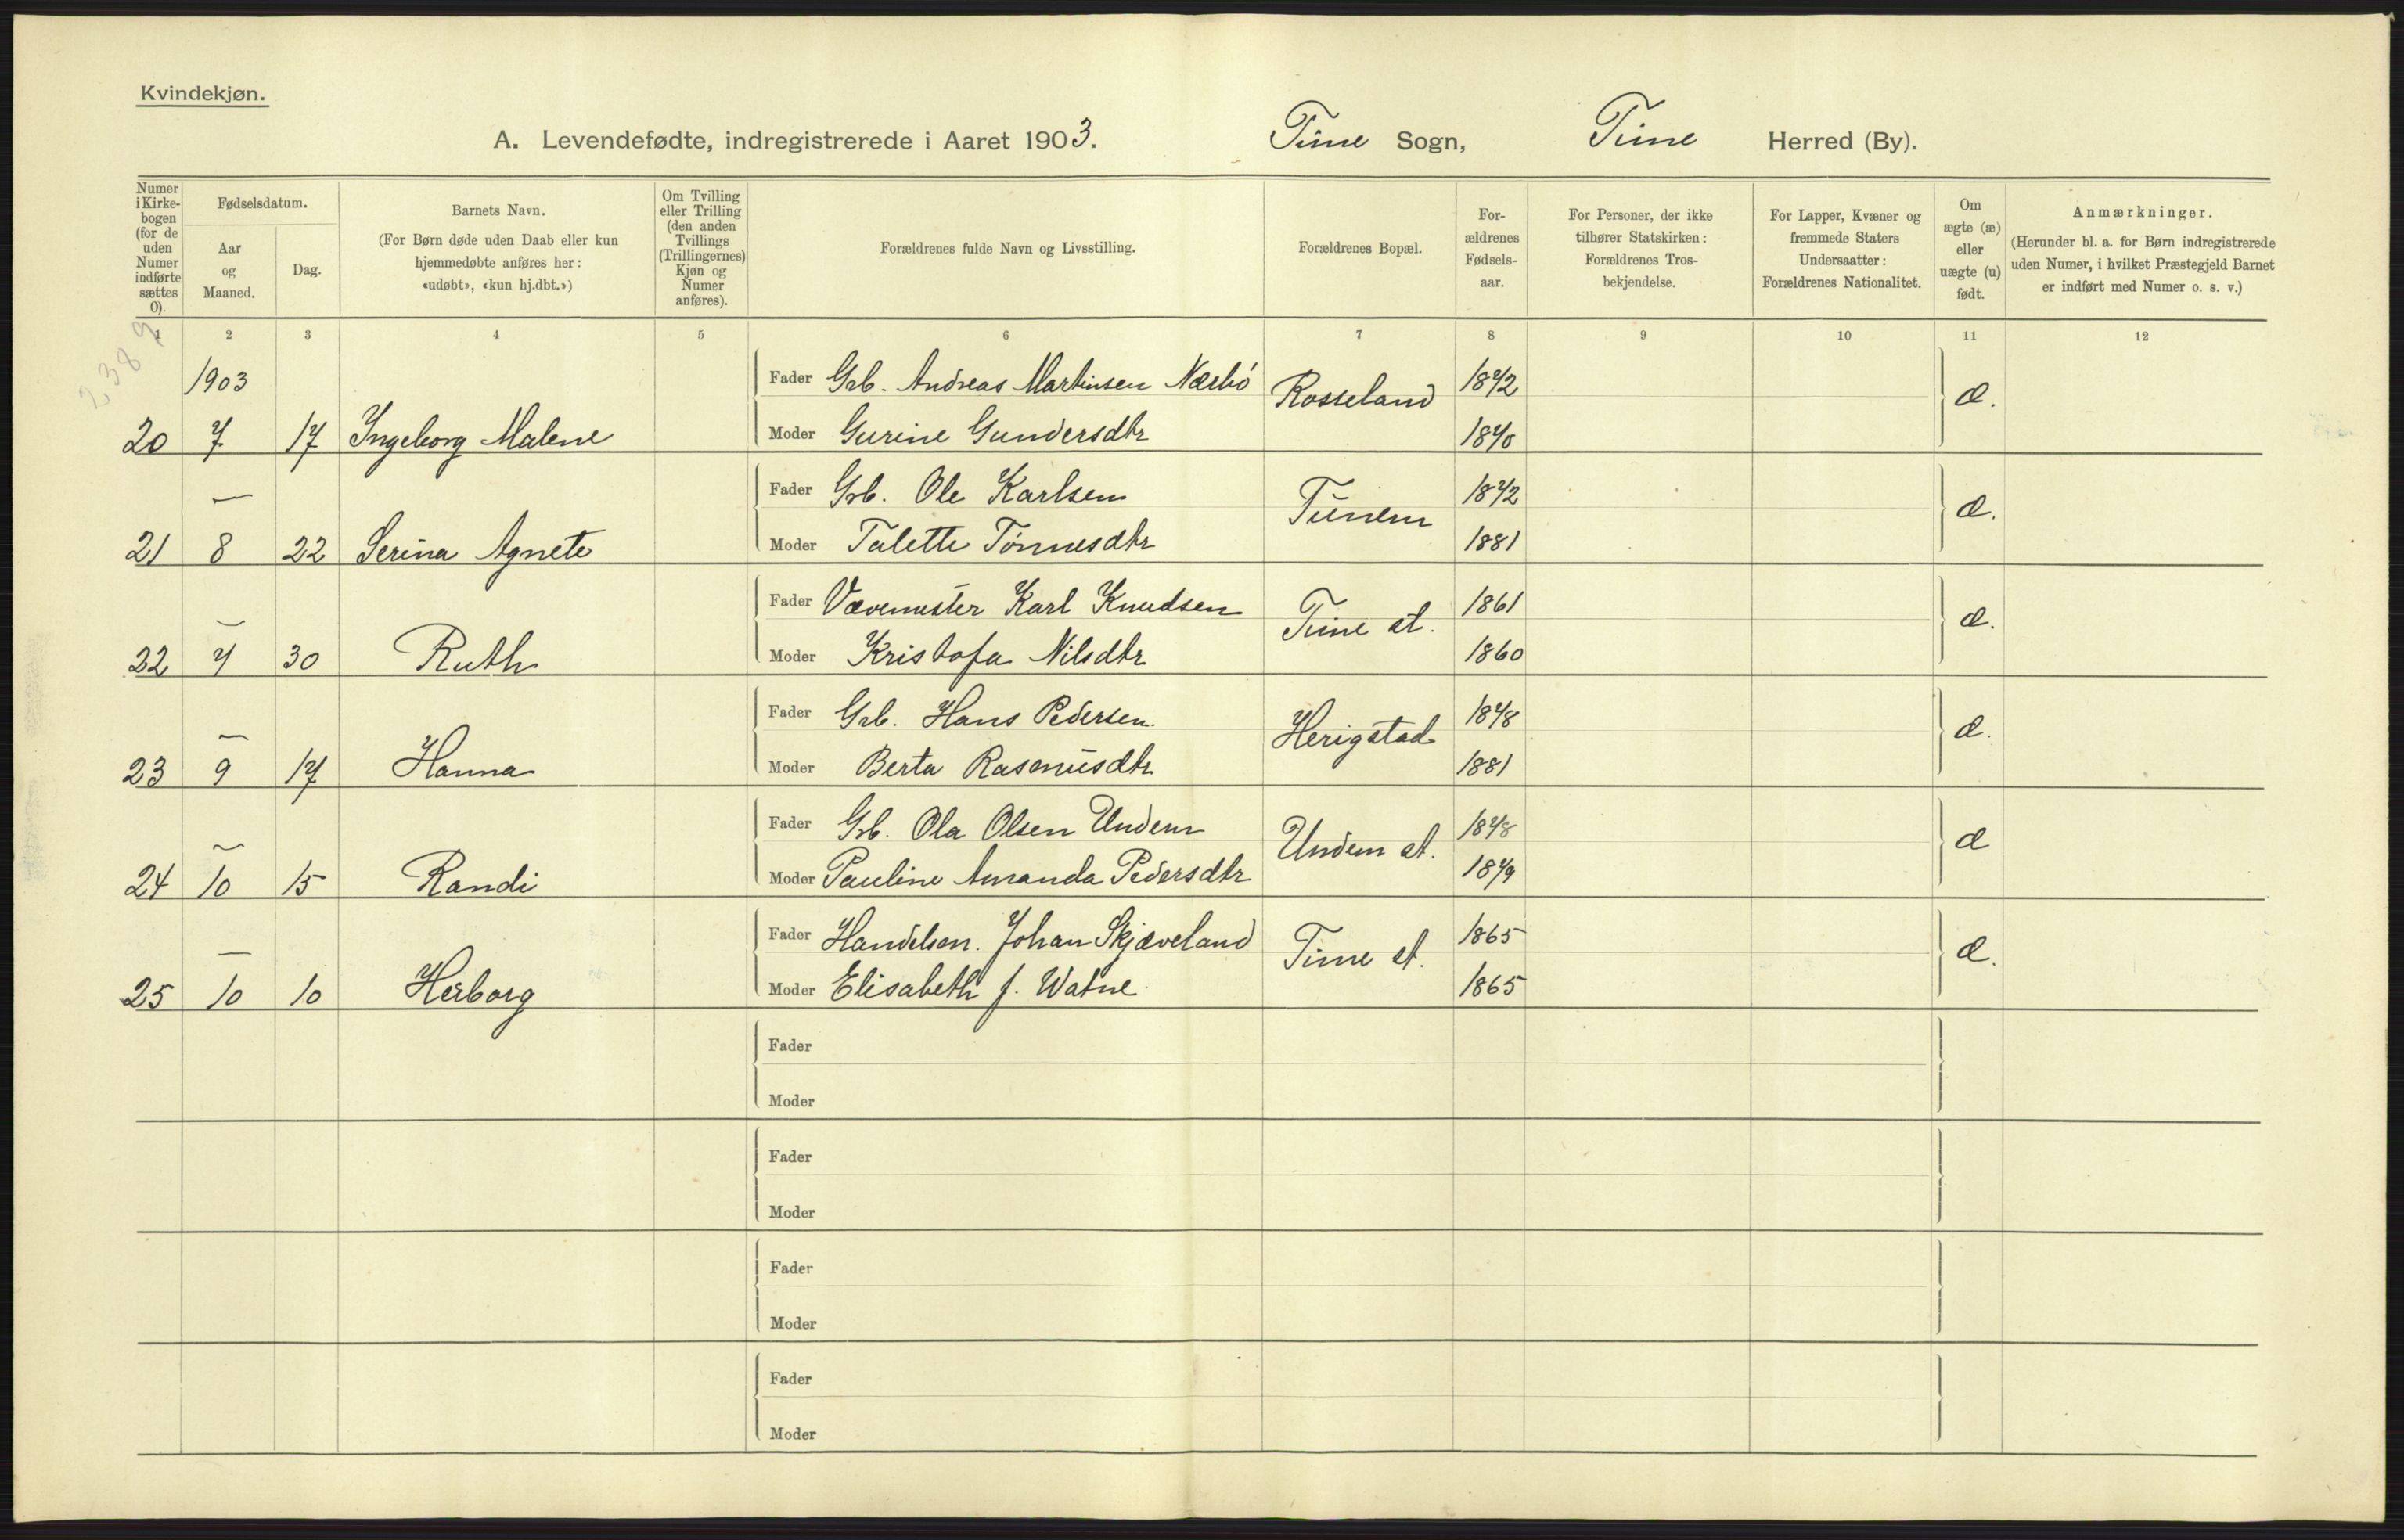 Kvindekjøn.
A. Levendefødte, indregistrerede i Aaret 1903. Time Sogn, Time Herred (By).
Numer i Kirkebogen (for de uden Numer indførte sættes 0).
Fødselsdatum.
Aar og Maaned.
Dag.
Barnets Navn.
(For Børn døde uden Daab eller kun hjemmedøbte anføres her: «udøbt», «kun hj.dbt.»)
Om Tvilling eller Trilling (den anden Tvillings (Trillingernes) Kjøn og Numer anføres).
Forældrenes fulde Navn og Livsstilling.
Forældrenes Bopæl.
Forældrenes Fødselsaar.
For Personer, der ikke tilhører Statskirken: Forældrenes Trosbekjendelse.
For Lapper, Kvæner og fremmede Staters Undersaatter: Forældrenes Nationalitet.
Om ægte (æ) eller uægte (u) født.
Anmærkninger.
(Herunder bl. a. for Børn indregistrerede uden Numer, i hvilket Præstegjeld Barnet er indført med Numer o. s. v.)
1 2 3 4 5 6 7 8 9 10 11 12
2389
1903 Fader Grb. Andreas Martinsen Nærbö Rosseland 1872 æ.
20 7 17 Ingeborg Malene Moder Gurine Gundersdtr 1870
— Fader Grb. Ole Karlsen Tunem 1872 æ.
21 8 22 Serina Agnete Moder Talette Tönnesdtr 1881
— Fader Vævemester Karl Knudsen Time st. 1861 æ.
22 7 30 Ruth Moder Kristofa Nilsdtr 1860
— Fader Grb. Hans Pedersen. Herigstad 1878 æ.
23 9 17 Hanna Moder Berta Rasmusdtr 1881
— Fader Grb. Ola Olsen Undem Undem st. 1878 æ
24 10 15 Randi Moder Pauline Amanda Pedersdtr 1879
— Fader Handelsm. Johan Skjæveland Time st. 1865 æ.
25 10 10 Herborg Moder Elisabeth f. Watne 1865
Fader
Moder
Fader
Moder
Fader
Moder
Fader
Moder